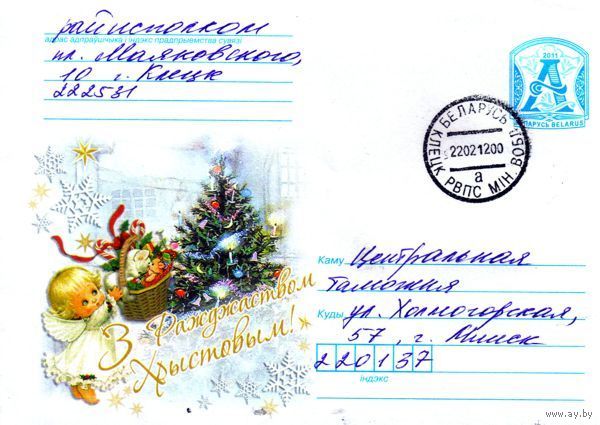 райисполком
адрас адпраўшчыка і індэкс прадпрыемства сувязі
пл. Маяковского,
10 г. Клецк
222531
2011
А
БЕЛАРУСЬ BELARUS
БЕЛАРУСЬ
КЛЕЦК РВПС МІН. ВОБЛ.
22021200
а
З Ражджаством
Хрыстовым!
Каму Центральная
таможня
Куды ул. Холмогорская,
57, г. Минск
220137
індэкс
www.ay.by